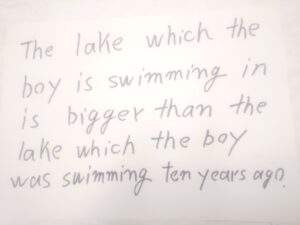 The lake which the
boy is swimming in
is bigger than the
lake which the boy
was swimming ten years ago.